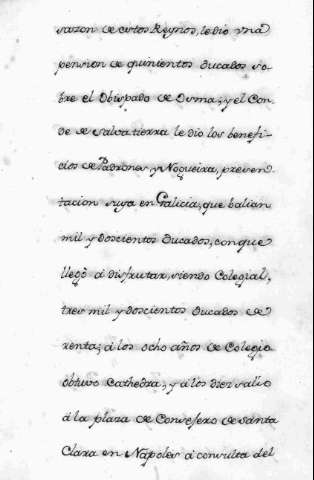 sazon de estos Reynos, le dio vna
pension de quinientos Ducados so-
bre el Obispado de Osma; y el Con-
de de Salvatierra le dio los benefi-
cios de Padrones, y Nogueira, presen-
tacion suya en Galicia, que balian
mil y Doscientos Ducados, con que
llegò à disfrutar, siendo Colegial,
tres mil y doscientos Ducados de
renta; à los ocho años de Colegio
obtuvo Cathedra; y à los diez salio
à la plaza de Consejero de Santa
Clara en Napoles à consulta del